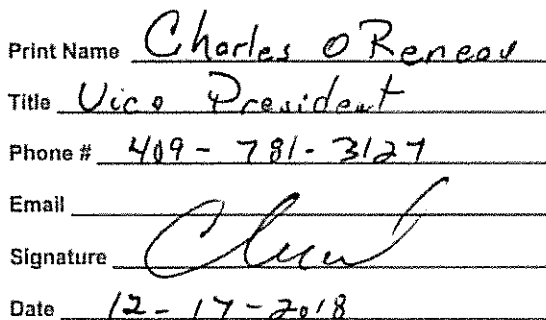 Print Name Charles O Reneau
Title Vice President
Phone # 409-781-3127
Email
Signature
Date 12-17-2018